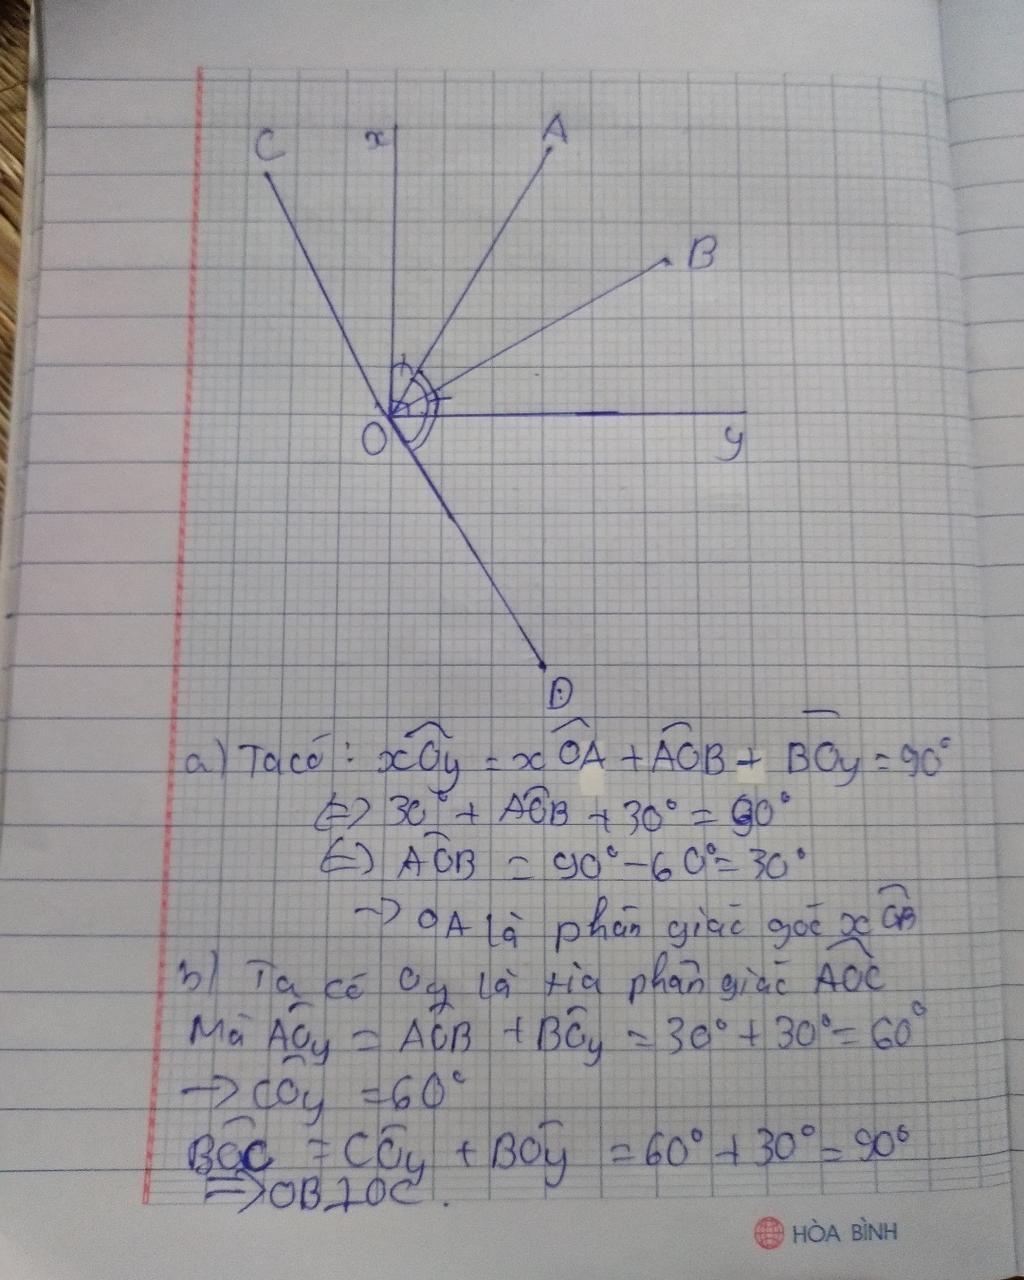 C
x
A
B
O
y
D
a) Ta có : xOy = xOA + AOB + BOy = 90°
<=> 30° + AOB + 30° = 90°
<=> AOB = 90° - 60° = 30°
-> OA là phân giác góc xOB
b) Ta có Oy là tia phân giác AOC
Mà AOy = AOB + BOy = 30° + 30° = 60°
-> COy = 60°
BOC = COy + BOy = 60° + 30° = 90°
=> OB⊥OC.
HÒA BÌNH